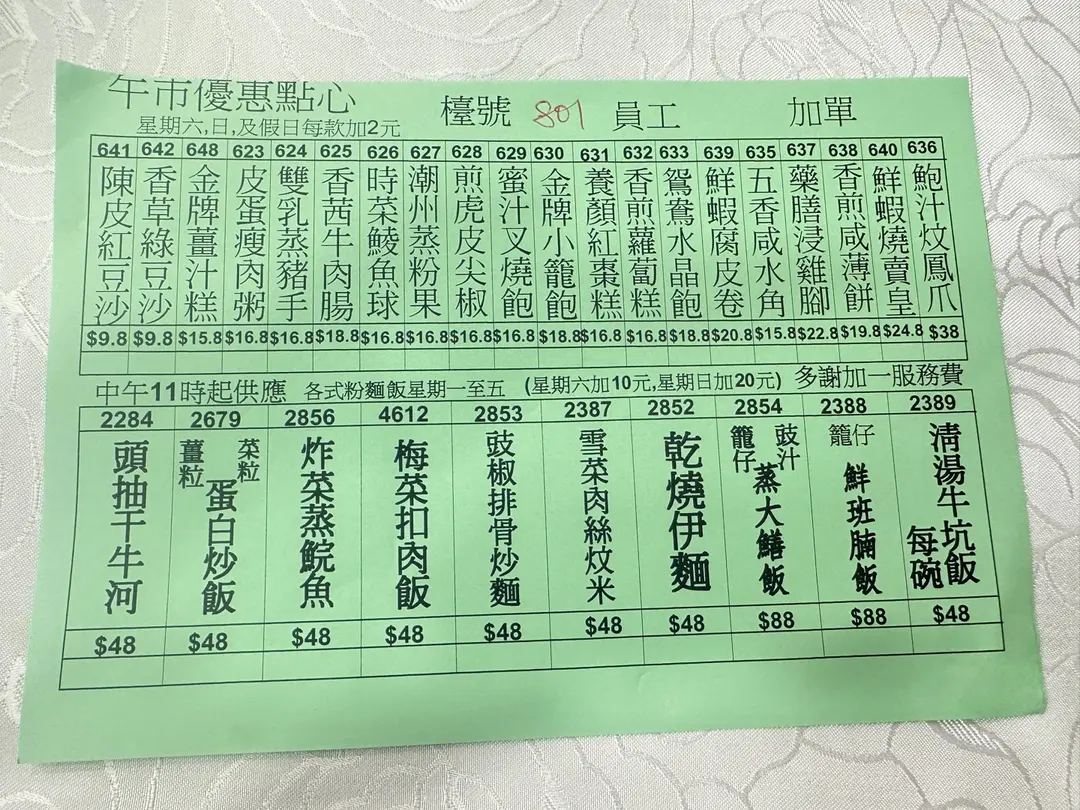 午市優惠點心
檯號 801 員工 加單
星期六,日,及假日每款加2元
641 642 648 623 624 625 626 627 628 629 630 631 632 633 639 635 637 638 640 636
陳皮紅豆沙
香草綠豆沙
金牌薑汁糕
皮蛋瘦肉粥
雙乳蒸豬手
香茜牛肉腸
時菜鯪魚球
潮州蒸粉果
煎虎皮尖椒
蜜汁叉燒飽
金牌小籠飽
養顏紅棗糕
香煎蘿蔔糕
鴛鴦水晶飽
鮮蝦腐皮卷
五香咸水角
藥膳浸雞腳
香煎咸薄餅
鮮蝦燒賣皇
鮑汁炆鳳爪
$9.8 $9.8 $15.8 $16.8 $16.8 $18.8 $16.8 $16.8 $16.8 $16.8 $18.8 $16.8 $16.8 $18.8 $20.8 $15.8 $22.8 $19.8 $24.8 $38
中午11時起供應 各式粉麵飯星期一至五 (星期六加10元,星期日加20元) 多謝加一服務費
2284 2679 2856 4612 2853 2387 2852 2854 2388 2389
頭抽干牛河
薑粒 菜粒 蛋白炒飯
炸菜蒸鯇魚
梅菜扣肉飯
豉椒排骨炒麵
雪菜肉絲炆米
乾燒伊麵
籠仔 豉汁 蒸大鱔飯
籠仔 鮮班腩飯
淸湯牛坑飯 每碗
$48 $48 $48 $48 $48 $48 $48 $88 $88 $48